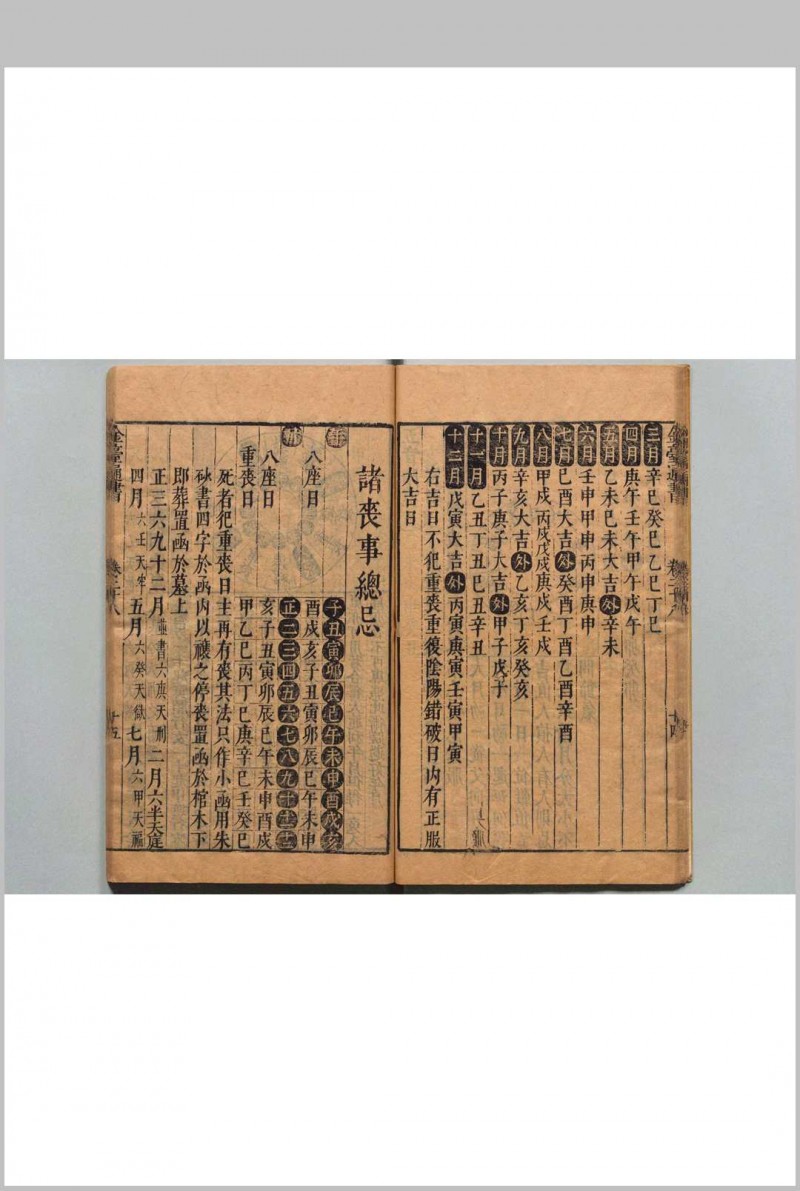 三月辛巳癸巳乙巳丁巳
四月庚午壬午甲午戊午
五月乙未己未大吉外辛未
六月壬申甲申丙申庚申
七月己酉大吉外癸酉丁酉乙酉辛酉
八月甲戌丙戌戊戌庚戌壬戌
九月辛亥大吉外乙亥丁亥癸亥
十月丙子庚子大吉外甲子戊子
十一月乙丑丁丑己丑辛丑
十二月戊寅大吉外丙寅庚寅壬寅甲寅
右吉日不犯重喪重復陰陽錯破日内有正服
大吉日
諸喪事總忌
年 子丑寅卯辰巳午未申酉戌亥
八座日 酉戌亥子丑寅卯辰巳午未申
正二三四五六七八九十十一十二
八座日 亥子丑寅卯辰巳午未申酉戌
重喪日 甲乙己丙丁己庚辛己壬癸己
死者犯重喪日主再有喪其法只作小函用朱
砂書四字於函内以禳之停喪置函於棺木下
即葬置函於墓上
正三六九十二月並書六庚天刑二月六辛天庭
四月六壬天牢五月六癸天獄七月六甲天福
金臺通書
卷三十八
十五